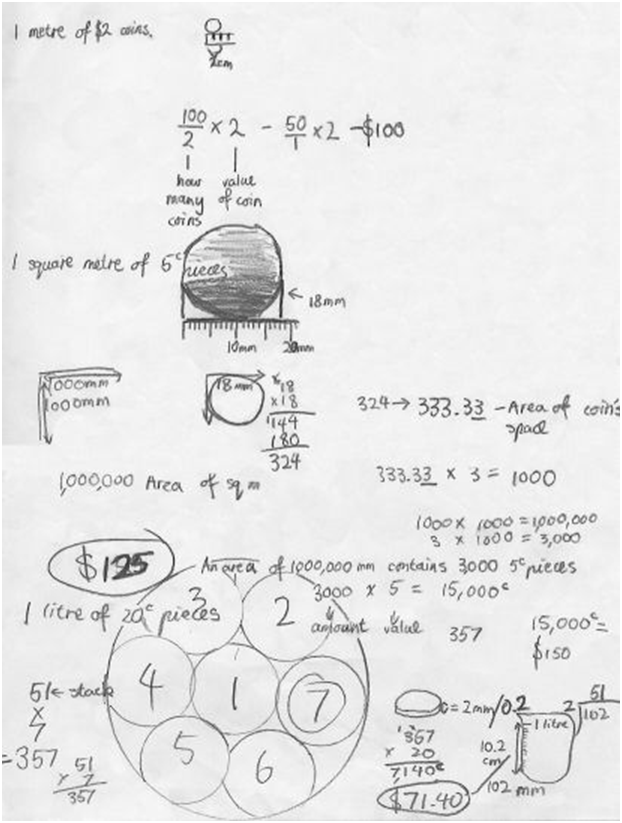 1 metre of $2 coins.
2cm
100/2 × 2 - 50/1 × 2 - $100
how many coins
value of coin
1 square metre of 5c pieces
18mm
10mm 20mm
1000mm
1000mm
18mm
18
×18
144
180
324
324 → 333.33 - Area of coin's
space
333.33 × 3 = 1000
1,000,000 Area of sq m
1000 × 1000 = 1,000,000
3 × 1000 = 3,000
$125
An area of 1000,000 mm contains 3000 5c pieces
3000 × 5 = 15,000c
amount value
15,000c =
$150
1 litre of 20c pieces
357
3
2
4
1
7
5
6
51 ← stack
×
7
=357
51
× 7
357
= 2mm/0.2
51
2 102
1 litre
10.2
cm
102 mm
357
× 20
7140c
$71.40